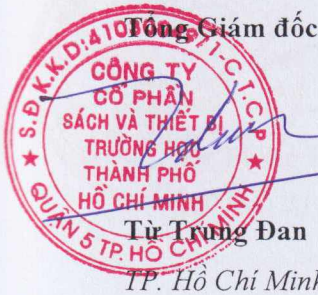 Tổng Giám đốc
S.Đ.K.K.D:410
1-C.T.C.P
CÔNG TY
CỔ PHẦN
SÁCH VÀ THIẾT BỊ
TRƯỜNG HỌC
THÀNH PHỐ
HỒ CHÍ MINH
QUẬN 5 TP. HỒ CHÍ MINH
Từ Trung Đan
TP. Hồ Chí Minh